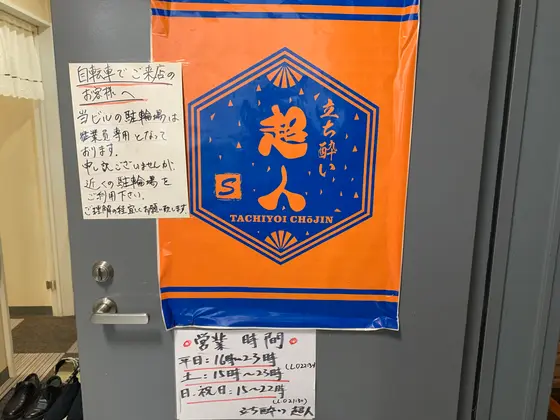 自転車でご来店の
お客様へ
当ビルの駐輪場は
従業員専用となって
おります。
申し訳ございませんが、
近くの駐輪場を
ご利用下さい。
ご理解の程宜しくお願い致します。
立ち酔い
超人
S
TACHIYOI CHōJIN
営業時間
平日:16時~23時
(L.O22:30)
土:15時~23時
日.祝日:15~22時
(L.O21:30)
立ち酔い 超人